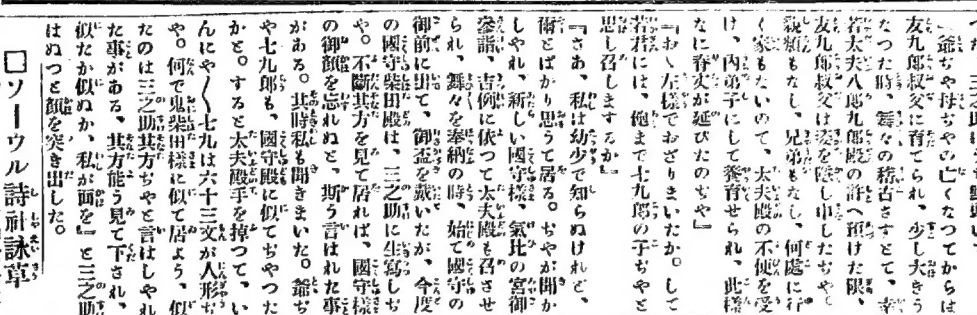 『爺ぢや母ぢやの亡くなつてからは
友九郎叔父に育てられ、少し大きう
なつた時、舞々の稽古さすとて、幸
若太夫八郎九郎殿の許へ預けた限、
友九郎叔父は姿を隱し申したぢやて
親類もなし、兄弟もなし、何處に行
く家もたいので、太夫殿の不便を受
け、内弟子にして養育せられ、此樣
なに脊丈が延びたのぢや』
『おゝ左樣でおざりまいたか。して
若君には、俺まで七九郎の子ぢやと
思し召しまするか』
『さあ、私は幼少で知らぬけれど、
衛とばかり思うて居る。ぢやが聞か
しやれ、新しい國守樣、氣比の宮御
參詣、吉例に依つて太夫殿も召させ
られ、舞々を奉納の時、始て國守の
御前に出て、御盃を戴いたが、今度
の國守柴田殿は、三之助に生寫しぢ
や。不斷其方を見て居れば、國守樣
の御顏を忘れぬと、斯う言はれた事
がある。其時私も聞きまいた。爺ぢ
や七九郎も、國守殿に似てぢやつた
かと。すると太夫殿手を掉つて、い
んにや〱七九は六十三文が人形ぢ
や。何で鬼柴田樣に似て居よう、似
たのは三之助其方ぢやと言はしやれ
た事がある、其方能う見て下され、
似たか似ぬか、私が面を』と三之助
はぬつと顏を突き出した。
□ソーウル詩社詠草